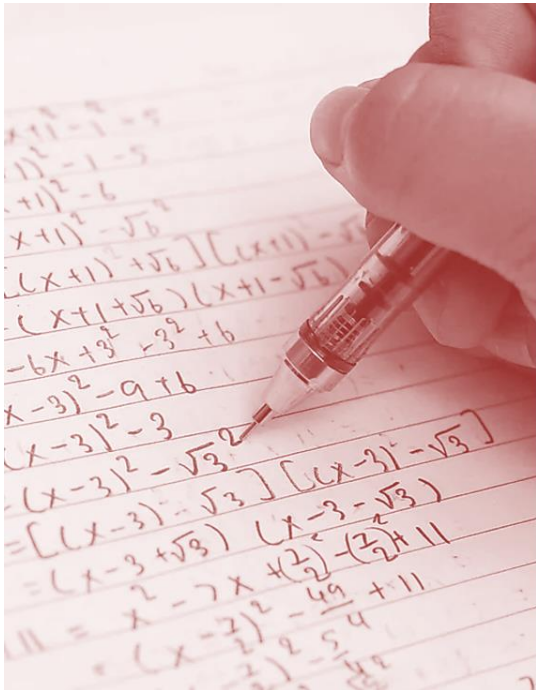 x+1² - 1² - 5
1)² - 1 - 5
+1)² - 6
x+1)² - √6²
[(x+1) + √6] [(x+1) - √
(x+1+√6)(x+1-√6)
-6x + 3² - 3² + 6
x-3)² - 9 + 6
(x-3)² - 3
-(x-3)² - √3²
=[(x-3) - √3] [(x-3) - √3]
=(x-3+√3) (x-3-√3)
11 = x² - 7x + (7/2)² - (7/2)² + 11
(x - 7/2)² - 49/4 + 11